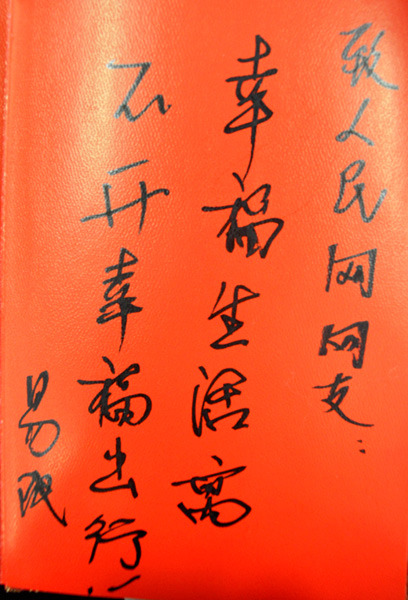 致人民网网友:
幸福生活离
不开幸福出行!
易珉